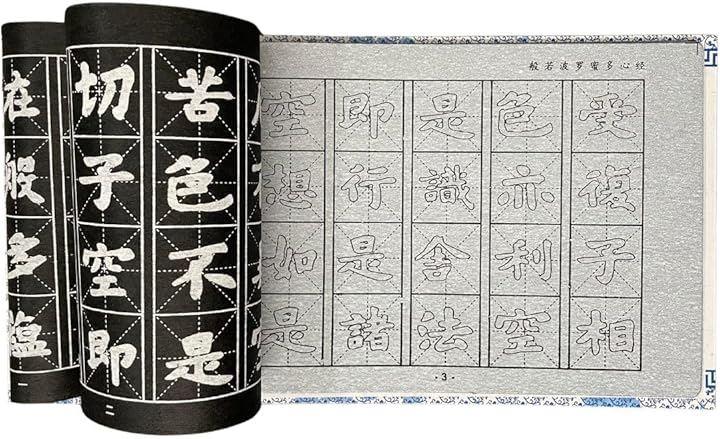 在
般
多
一
切苦
子色
空不
即是
二
般若波罗蜜多心经
空即是色受
想行識亦復
如是舍利子
是諸法空相
- 3 -